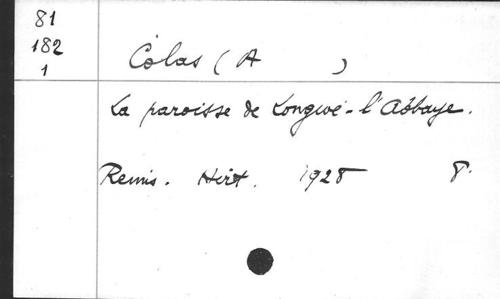 81
182
1
Colas (A )
La paroisse de Longwé-l'Abbaye.
Reims. Hirt. 1928 8.